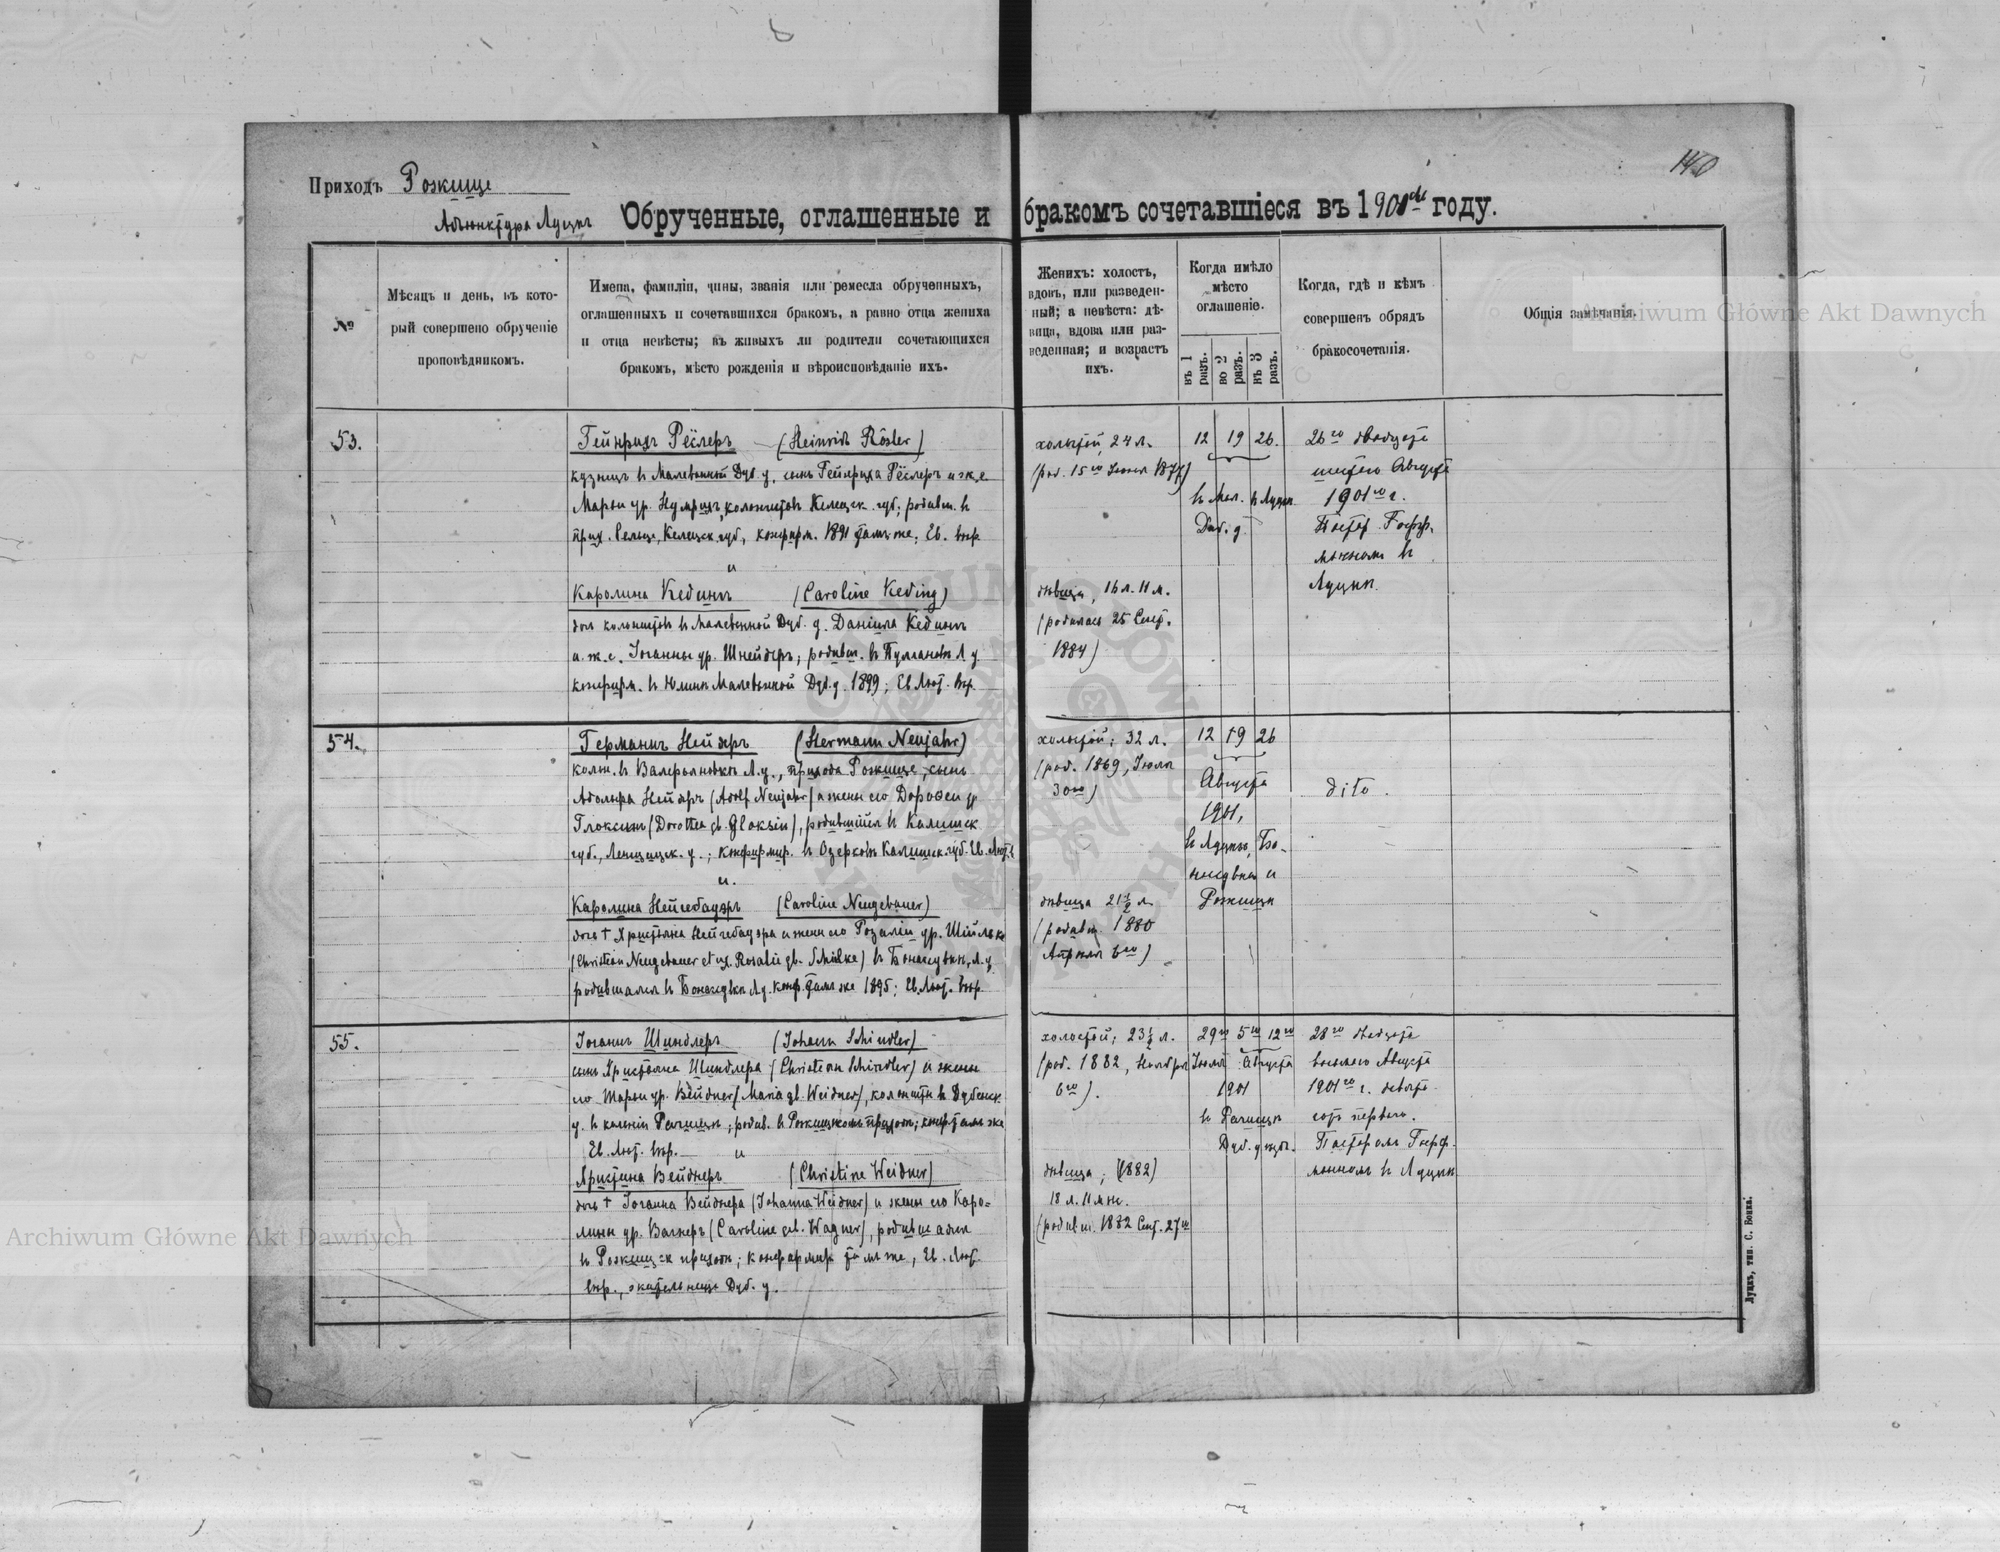 140
Приходъ Рожище
Адъюнктура Луцкъ
Обрученные, оглашенные и бракомъ сочетавшіеся въ 1901 году.
№
Мѣсяцъ и день, въ кото-
рый совершено обрученіе
проповѣдникомъ.
Имена, фамиліи, чины, званія или ремесла обрученныхъ,
оглашенныхъ и сочетавшихся бракомъ, а равно отца жениха
и отца невѣсты; въ живыхъ ли родители сочетающихся
бракомъ, мѣсто рожденія и вѣроисповѣданіе ихъ.
Женихъ: холостъ,
вдовъ, или разведен-
ный; а невѣста: дѣ-
вица, вдова или раз-
веденная; и возрастъ
ихъ.
Когда имѣло
мѣсто
оглашеніе.
въ 1 разъ.
во 2 разъ.
въ 3 разъ.
Когда, гдѣ и кѣмъ
совершенъ обрядъ
бракосочетанія.
Общія замѣчанія.
53.
Гейнрихъ Рёслеръ (Heinrich Rösler)
кузнецъ въ Малеванной Дуб. у. сынъ Гейнриха Рёслеръ и ж. е.
Маріи ур. колонистовъ Келецк. губ; родивш. въ
прих. Келецк. губ, конфирм. 1891 тамъ же; Ев.
и
Каролина Кедингъ (Caroline Keding)
дочь колонистовъ въ Малеванной Дуб. у. Даніила Кедингъ
и. ж. е. Іоганны ур. Шнейдеръ; родивш. въ Л. у.
конфирм. въ Малеванной Дуб. у. 1899; Ев Лют. вѣр.
холостой, 24 л.
(род. 15го Іюня 1877)
дѣвица, 16 л. 11 м.
(родилась 25 Сент.
1884)
12 19 26.
въ Мал. въ Луцкѣ
Дуб. у.
26го двадцать
шестого Августа
1901го г.
Пастор. Гофф-
манномъ въ
Луцкѣ.
54.
Германъ Нейяръ (Hermann Neujahr)
колон. въ Валерьяновкѣ Л. у., прихода Рожище, сынъ
Адольфа Нейяръ (Adolf Neujahr) и жены его Доротеи ур
Глоксинъ (Dorothea gb. Gloksin), родившійся въ Калишск
губ., Ленчицк. у.; конфирмир. въ Озорковѣ Калишск. губ. Ев. Лют.
и.
Каролина Нейгебауэръ (Caroline Neugebauer)
дочь † Христьяна Нейгебауэра и жены его Розаліи ур. Шильке
(Christian Neugebauer et ux. Rosalie gb. Schilke) въ Л. у.
родившаяся въ Л у. конф. тамъ же 1895; Ев. Лют. вѣр
холостой; 32 л.
(род. 1869, Іюля
30го)
дѣвица 21½ л.
(родивш. 1880
Апрѣля 6го)
12 19 26
Августа
1901,
въ Луцкѣ,
и
Рожищѣ
dito.
55.
Іоганнъ Шиндлеръ (Johann Schindler)
сынъ Христьяна Шиндлера (Christian Schindler) и жены
его Маріи ур. Вейднеръ (Maria gb. Weidner), колонисты въ Дубенск.
у. въ колоніи Речищѣ; родив. въ Рожищскомъ приходѣ; конф. тамъ же
Ев. Лют. вѣр. и
Христина Вейднеръ (Christine Weidner)
дочь † Іоганна Вейднера (Johanna Weidner) и жены его Каро-
лины ур. Вагнеръ (Caroline gb. Wagner), родившаяся
въ Рожищск приходѣ; конфирмир тамъ же, Ев. Лют.
вѣр., жительница Дуб. у.
холостой; 23½ л.
(род. 1882, Ноября
6го).
дѣвица; (1882)
18 л. 11 мѣс.
(родивш. 1882 Сент. 27го
29го 5го 12го
Іюля Августа
1901
въ Речищѣ
Дуб. уѣзд.
28го двадцать
восьмого Августа
1901го г. девять-
сотъ перваго.
Пасторомъ Гофф-
манномъ въ Луцкѣ
Луцкъ, тип. С. Бонка.
Archiwum Główne Akt Dawnych
Archiwum Główne Akt Dawnych